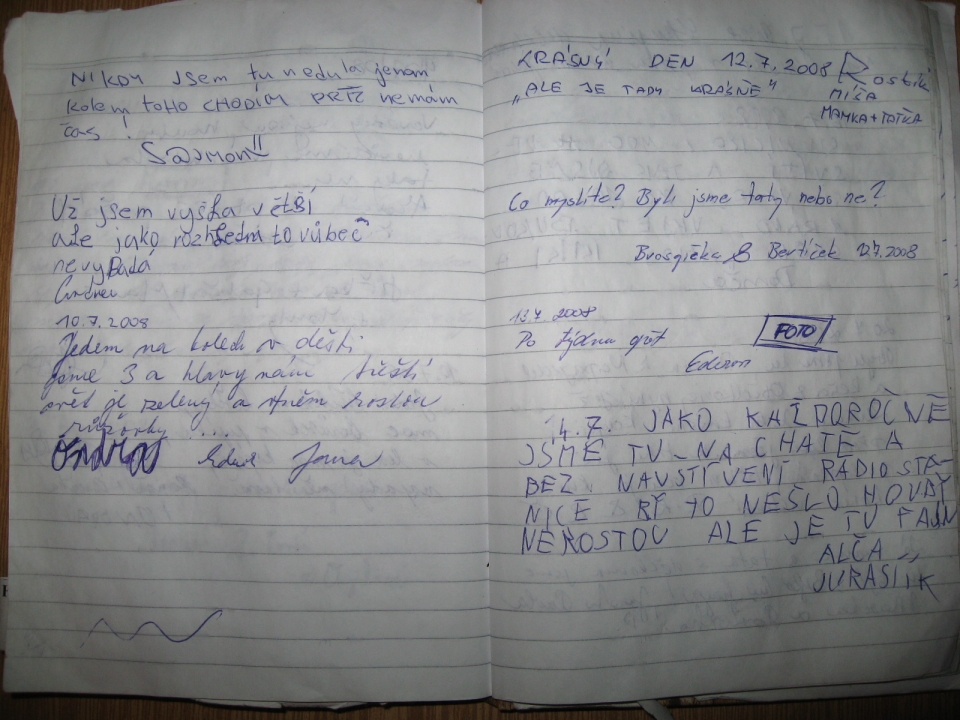 NIKDY JSEM tu nedula jenom
kolem toho CHODÍM PRTŽ nemám
čas!
SajMON!!
Už jsem vyšla větší
ale jako rozhledna to vůbec
nevypadá
Ondra
10.7.2008
Jedem na kolech v dešti
jsme 3 a hlavy nám třeští
svět je zelený a
....
Jana
KRÁSNÝ DEN 12.7.2008 Rostik
„ALE JE TADY KRÁSNĚ“ MÍŠA
MAMKA + TAŤKA
Co myslíte? Byli jsme tady nebo ne?
Brosgička & Bertíček 12.7.2008
13.7.2008
Po týdnu opět FOTO
Edison
14.7. JAKO KAŽDOROČNĚ
JSME TU NA CHATĚ A
BEZ NAVSTÍVENÍ RADIOSTA-
NICE BY TO NEŠLO HOUBY
NEROSTOU ALE JE TU FAJN
ALČA
JURASIIK